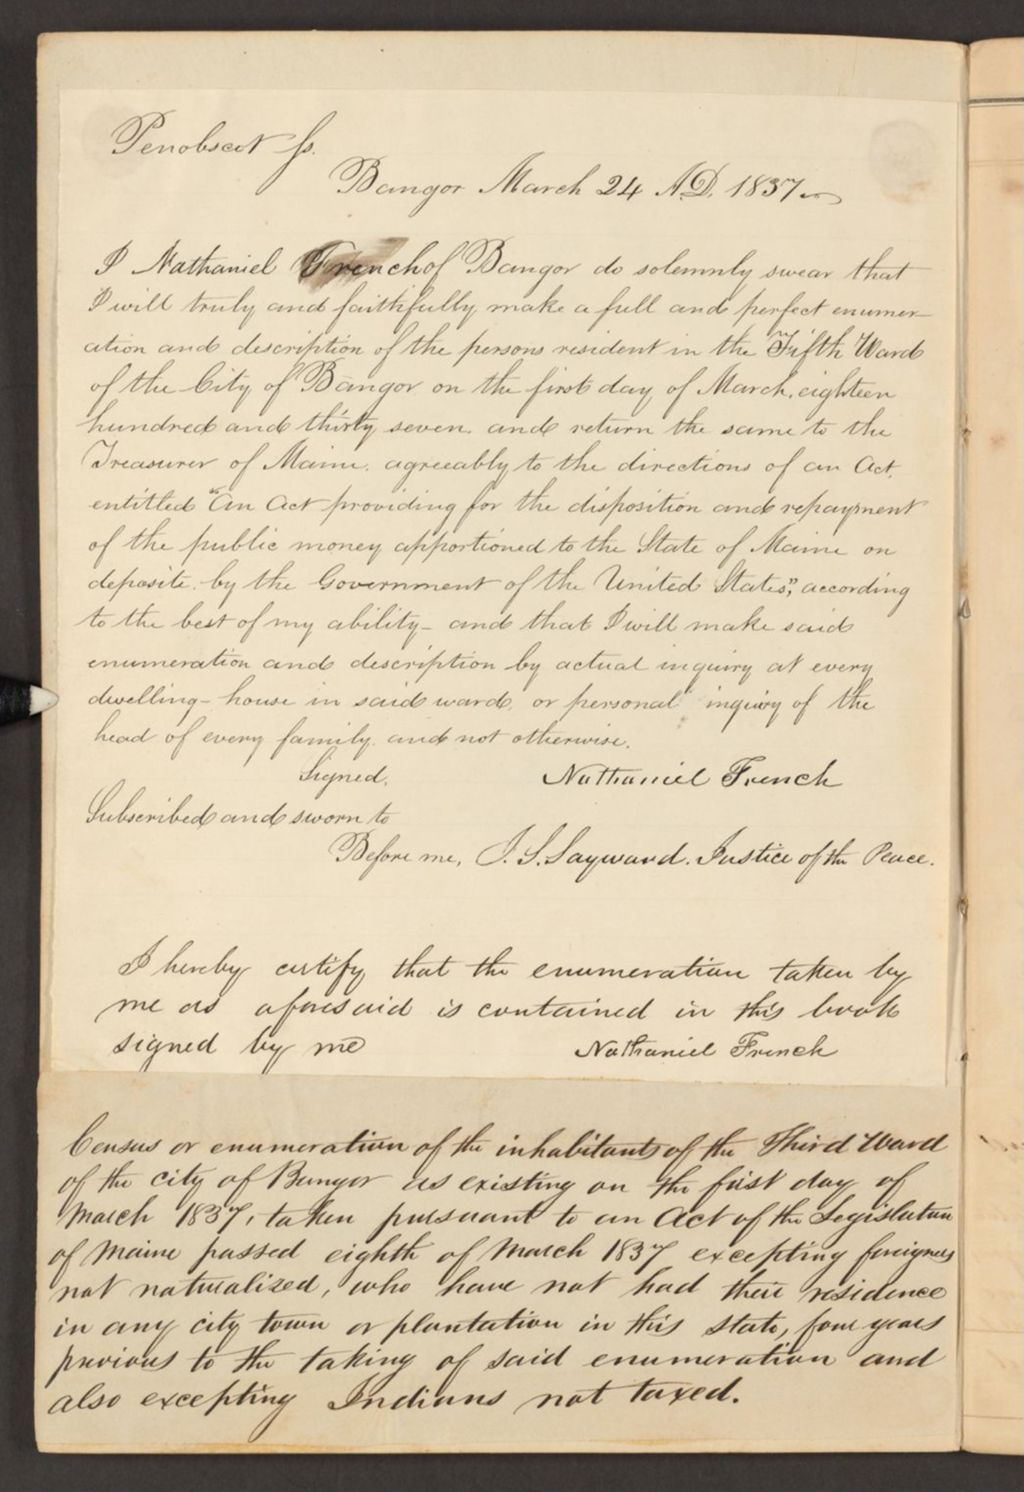 Penobscot ss.
Bangor March 24 A.D. 1837
I Nathaniel French of Bangor do solemnly swear that
I will truly and faithfully make a full and perfect enumer-
ation and description of the persons resident in the Fifth Ward
of the City of Bangor on the first day of March, eighteen
hundred and thirty seven, and return the same to the
Treasurer of Maine, agreeably to the directions of an Act,
entitled "An Act providing for the disposition and repayment
of the public money apportioned to the State of Maine on
deposite by the Government of the United States", according
to the best of my ability - and that I will make said
enumeration and description by actual inquiry at every
dwelling-house in said ward, or personal inquiry of the
head of every family and not otherwise.
Signed, Nathaniel French
Subscribed and sworn to
Before me, J. S. Sayward. Justice of the Peace.
I hereby certify that the enumeration taken by
me as aforesaid is contained in this book
signed by me Nathaniel French
Census or enumeration of the inhabitants of the Third Ward
of the city of Bangor as existing on the first day of
March 1837, taken pursuant to an Act of the Legislature
of Maine passed eighth of March 1837 excepting foreigners
not naturalized, who have not had their residence
in any city town or plantation in this state, four years
previous to the taking of said enumeration and
also excepting Indians not taxed.